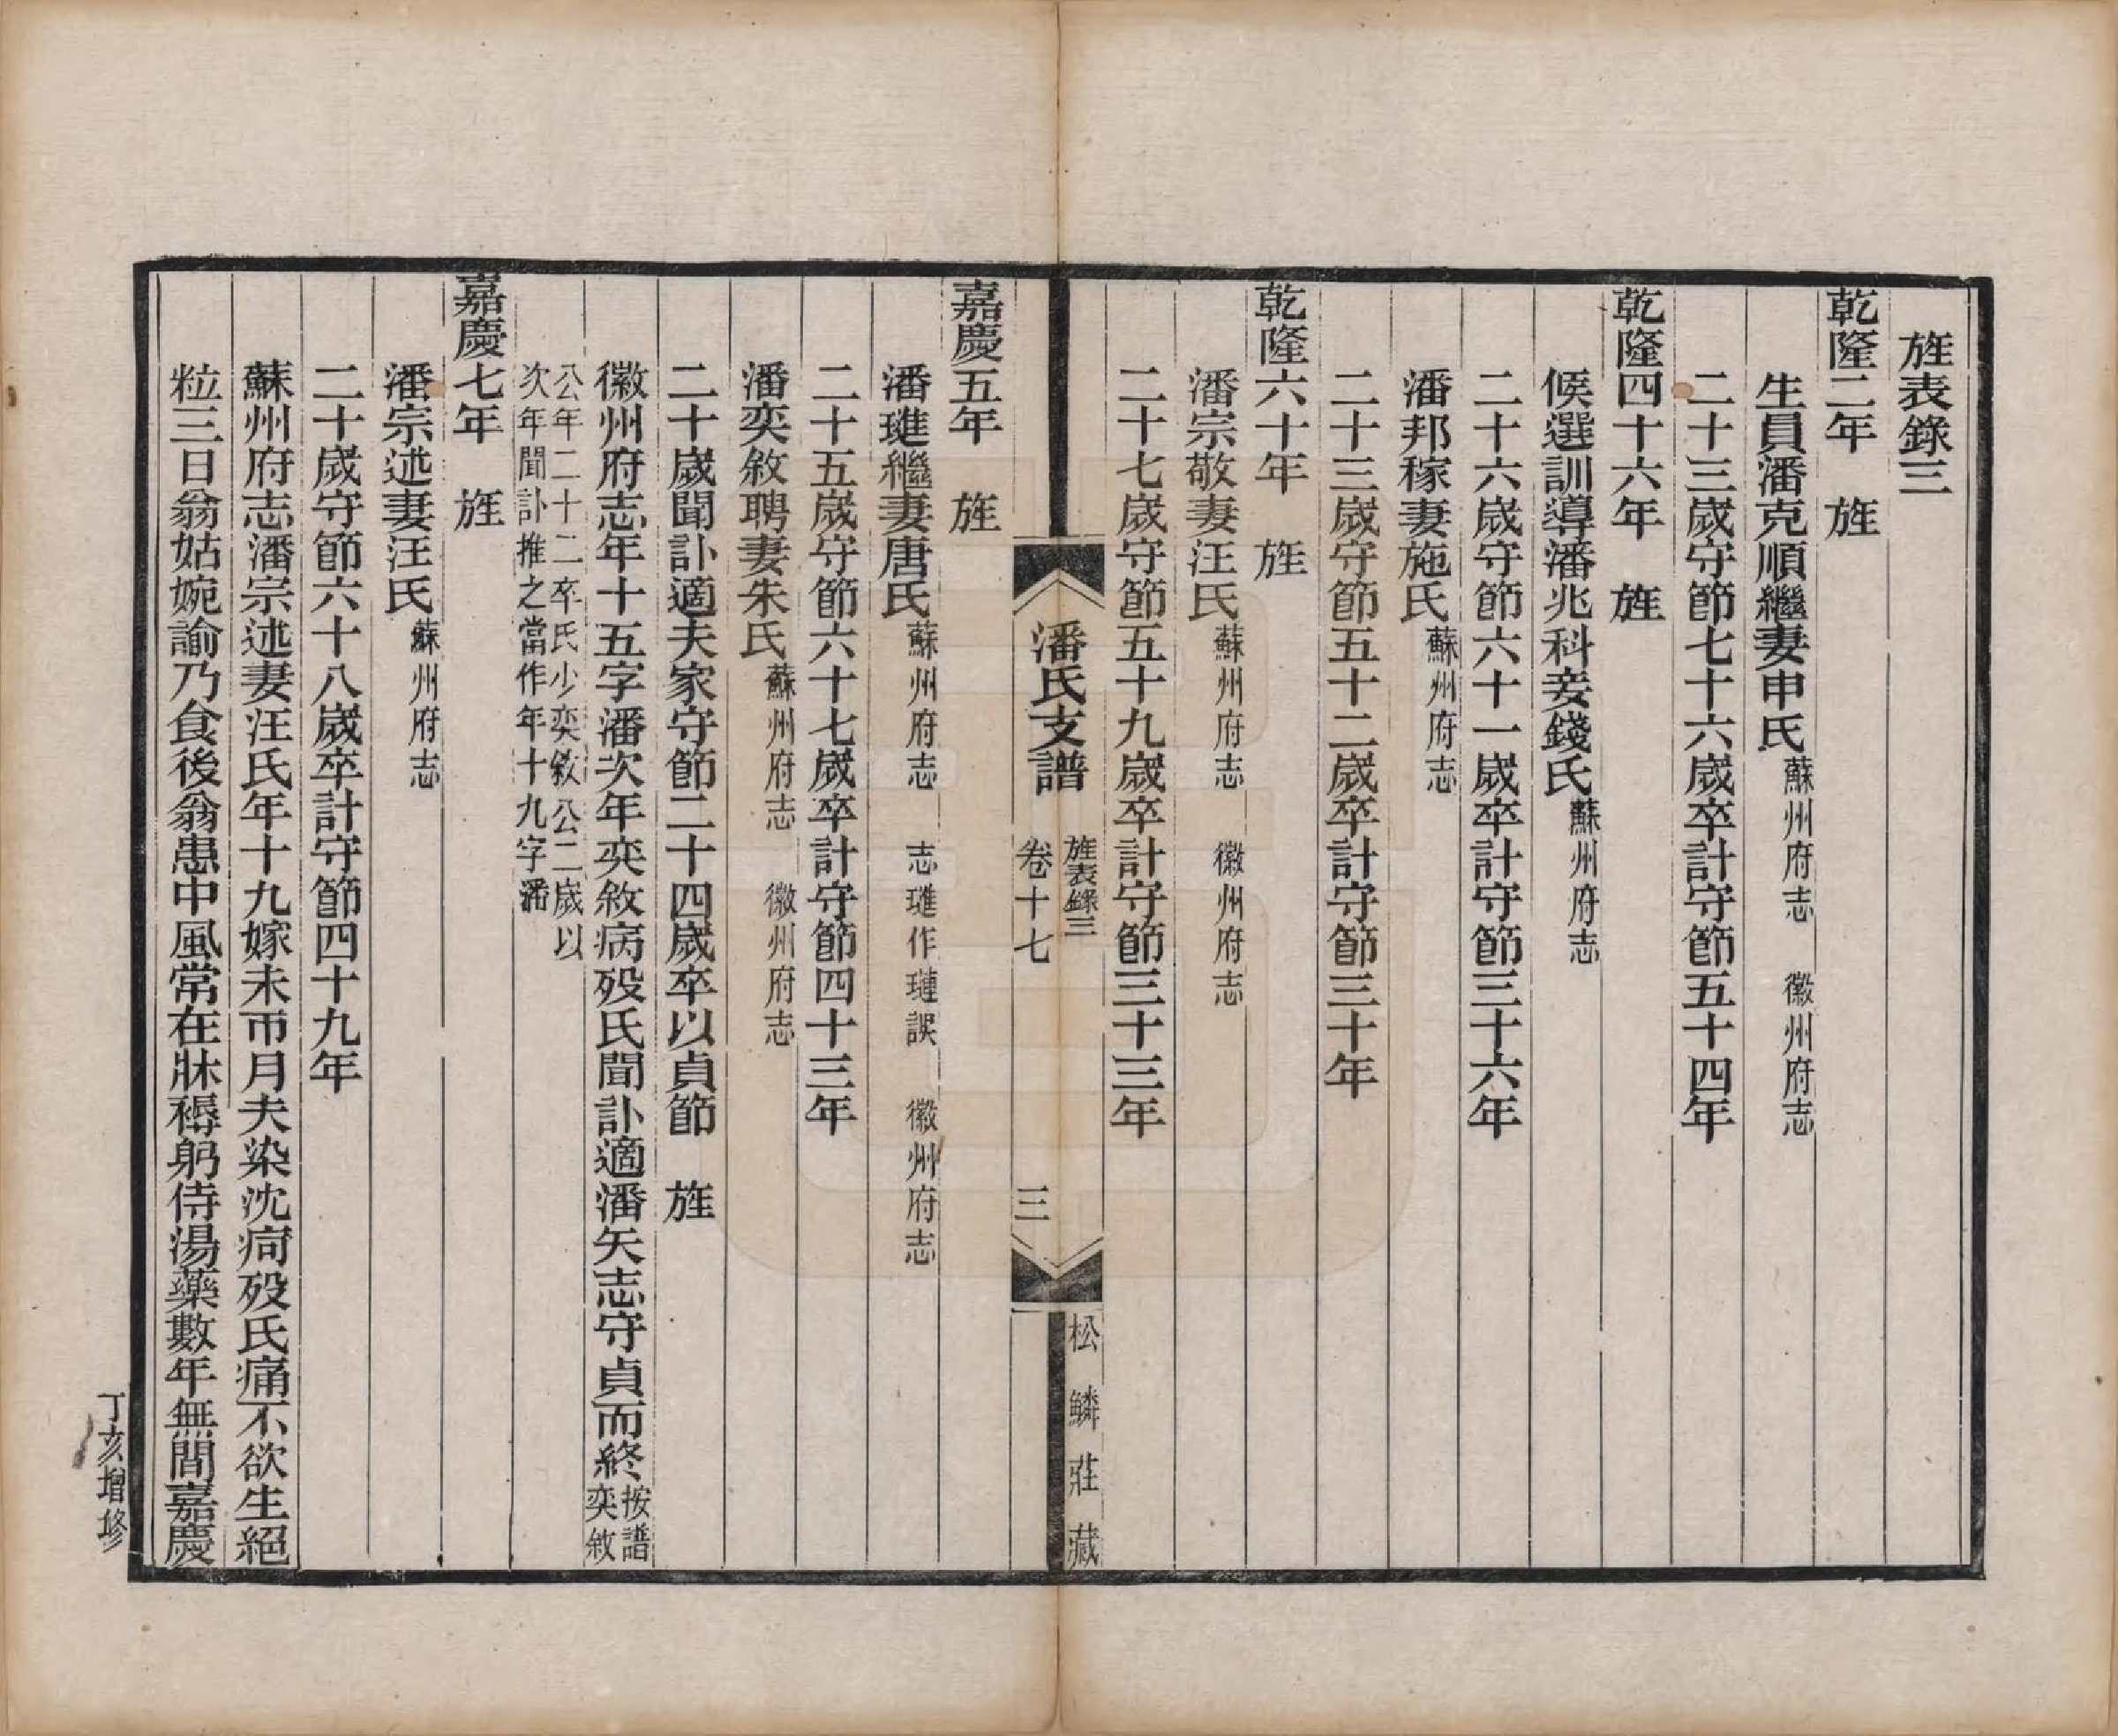 旌表錄三
乾隆二年　旌
生員潘克順繼妻申氏蘇州府志　徽州府志
二十三歲守節七十六歲卒計守節五十四年
乾隆四十六年　旌
候選訓導潘兆科妾錢氏蘇州府志
二十六歲守節六十一歲卒計守節三十六年
潘邦稼妻施氏蘇州府志
二十三歲守節五十二歲卒計守節三十年
乾隆六十年　旌
潘宗敬妻汪氏蘇州府志　徽州府志
二十七歲守節五十九歲卒計守節三十三年
潘氏支譜　卷十七　旌表錄三　三　松鱗莊藏
嘉慶五年　旌
潘璡繼妻唐氏蘇州府志　志璡作璉誤　徽州府志
二十五歲守節六十七歲卒計守節四十三年
潘奕敘聘妻朱氏蘇州府志　徽州府志
二十歲聞訃適夫家守節二十四歲卒以貞節　旌
徽州府志年十五字潘次年奕敘病歿氏聞訃適潘矢志守貞而終按譜奕敘
公年二十二卒氏少奕敘公二歲以
次年聞訃推之當作年十九字潘
嘉慶七年　旌
潘宗述妻汪氏蘇州府志
二十歲守節六十八歲卒計守節四十九年
蘇州府志潘宗述妻汪氏年十九嫁未帀月夫染沈疴歿氏痛不欲生絕
粒三日翁姑婉諭乃食後翁患中風常在牀褥躬侍湯藥數年無間嘉慶
丁亥增修